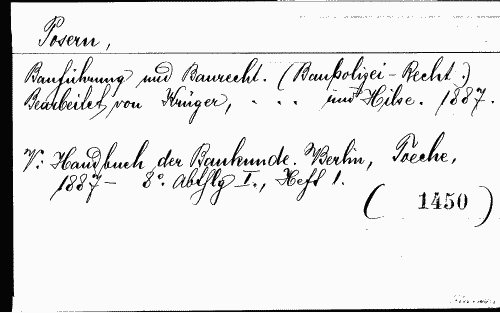 Posern,
Bauführung und Baurecht. (Baupolizei-Recht.)
Bearbeitet von Krüger, . . . und Hilse. 1887.
V: Handbuch der Baukunde. Berlin, Toeche,
1887- 8°. Abthlg I., Heft 1.
(1450)